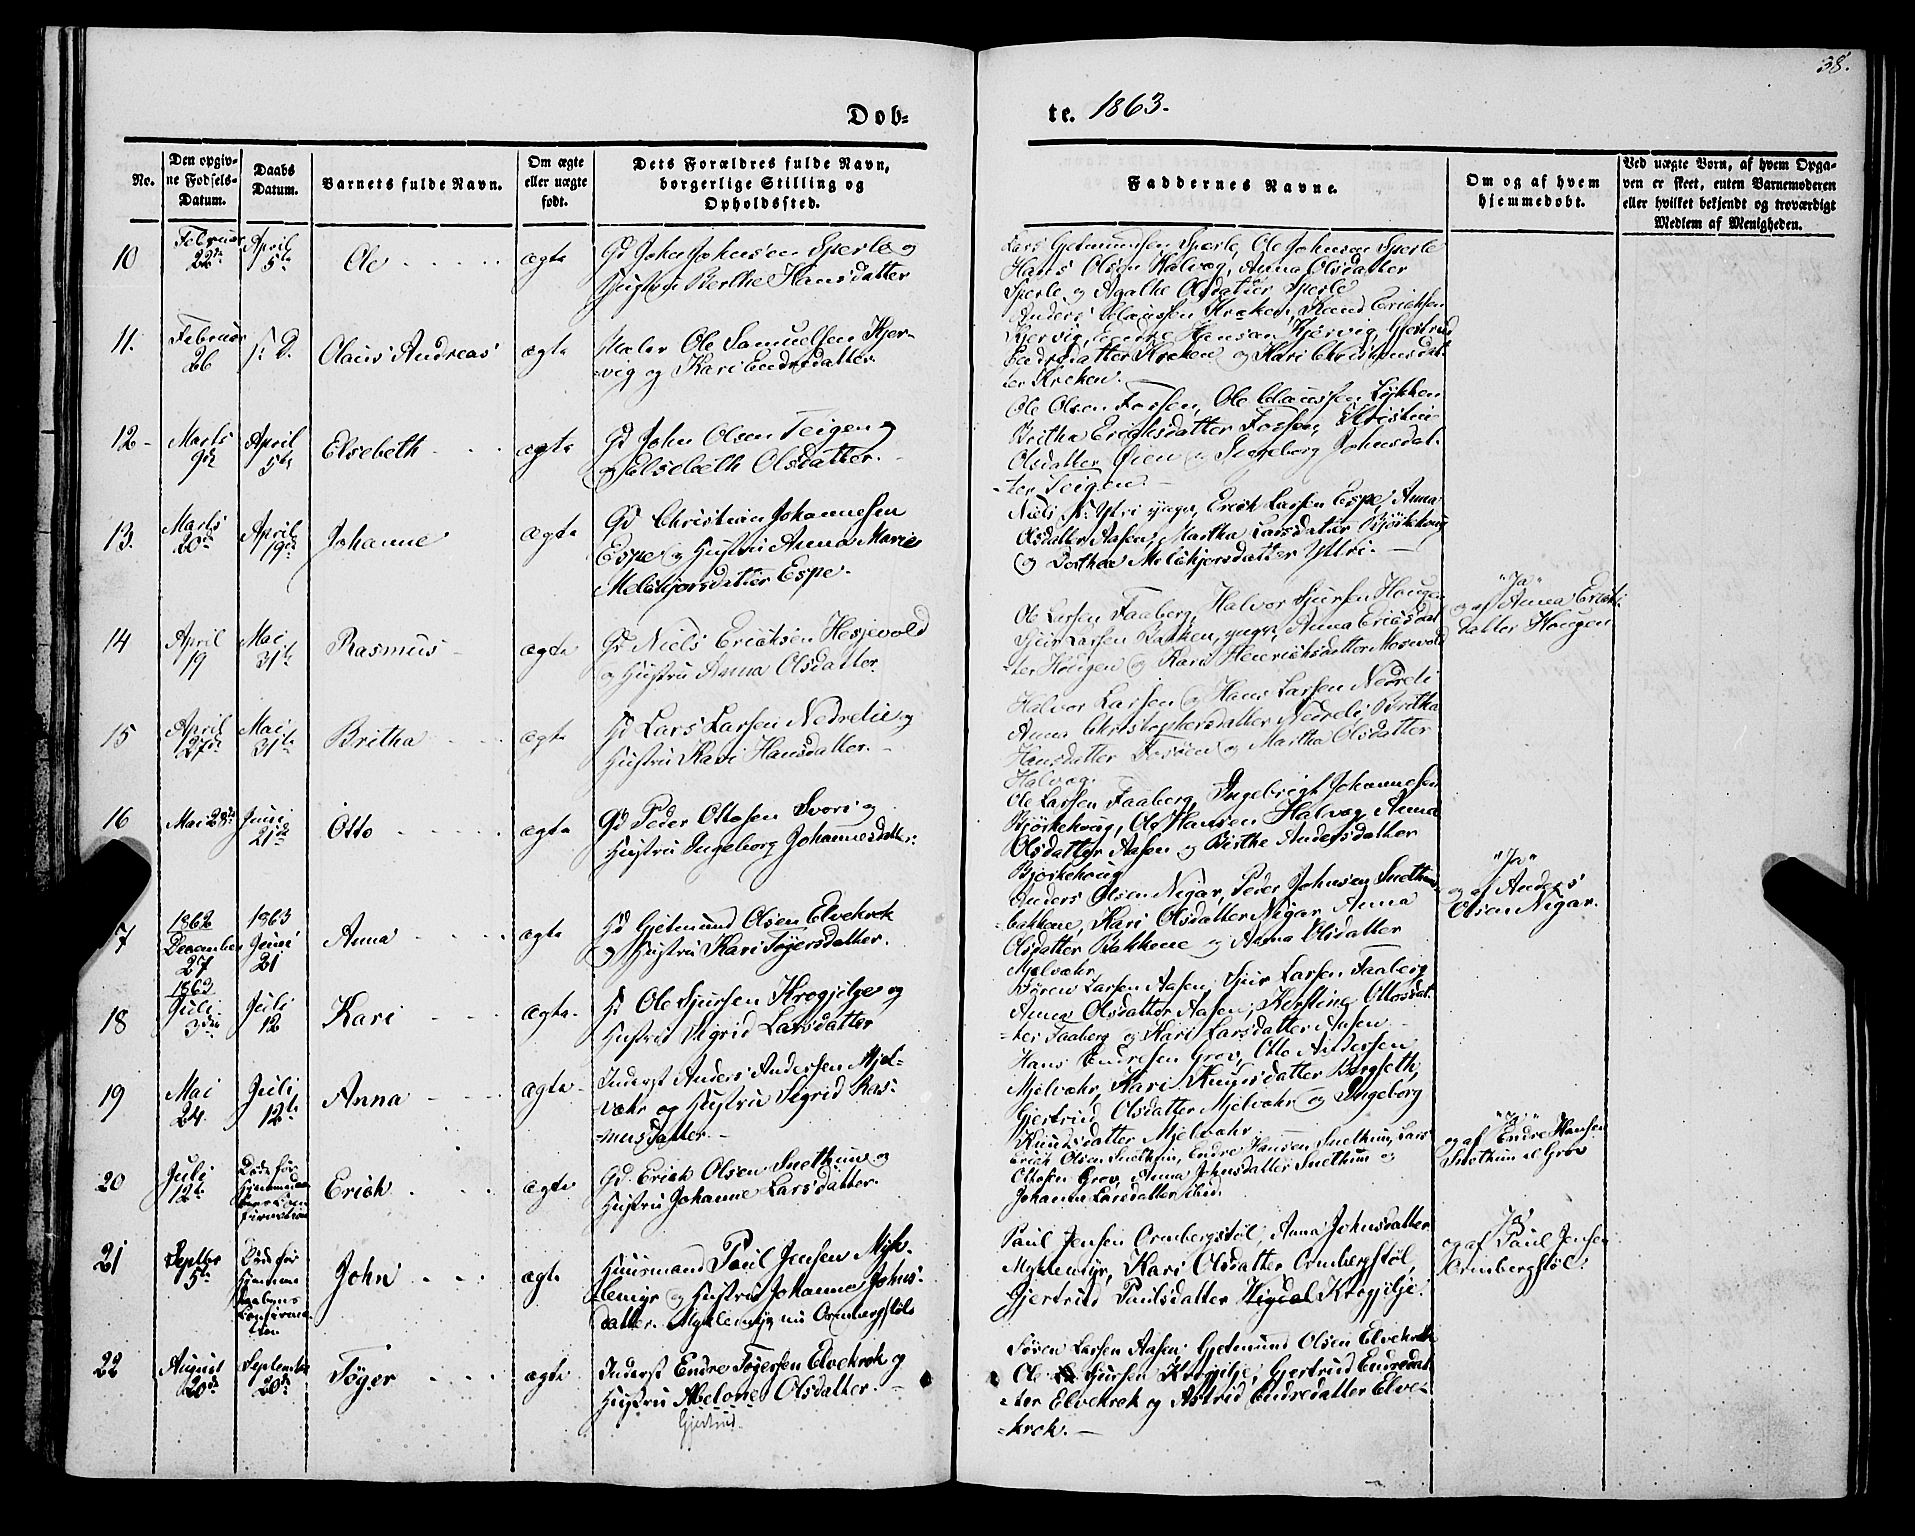 38.
Døb-
te. 1863.
No.
Den opgiv-
ne Fødsels-
Datum.
Daabs
Datum.
Barnets fulde Navn.
Om ægte
eller uægte
født.
Dets Forældres fulde Navn,
borgerlige Stilling og
Opholdssted.
Faddernes Navne.
Om og af hvem
hjemmedøbt.
Ved uægte Børn, af hvem Opga-
ven er skeet, enten Barnemoderen
eller hvilket bekjendt og troværdigt
Medlem af Menigheden.
10
Februar
22
April
5te
Ole
ægte
Gd John Johnsen Sperle og
Hustru Berthe Hansdatter
Lars Gjetmundsen Sperle, Ole Johnsen Sperle
Hans Olsen Halvæg, Anna Olsdatter
Sperle og Agathe Olsdatter Sperle
11.
Februar
26
s. D.
Olaus Andreas
ægte
Ole Samuelsen Kjer-
vig og Kari Endresdatter
Anders Claussen Kroken, Knud Ericksen
Kjervig, Endre Hansen Kjørvig, Gjertrud
Endresdatter Kroken og Kari Christensdat-
ter Kroken.
12
Marts
9de
April
5te
Elsebeth
ægte
Gd John Olsen Teigen og
Elsebeth Olsdatter.
Ole Olsen Fossen, Ole Claussen Løkken
Britha Ericksdatter Fossen,
Olsdatter Øien og Ingeborg Johnsdat-
ter Teigen.
13.
Marts
20de
April
19de
Johanne
ægte
Gd Christian Johannesen
Espe og Hustru Anna Marie
Melchjorsdatter Espe.
Niels Ytri yngre, Erick Larsen Espe, Anna
Olsdatter Aasen, Martha Larsdatter Bjørkehoug
og Dorthea Melchjorsdatter Yttri.
14
April
19
Mai
31te
Rasmus
ægte
Gd Niels Ericksen Hesjevold
og Hustru Anna Olsdatter.
Ole Larsen Faaberg, Halvor Sjursen Hougen
Sjur Larsen Bakken, yngr, Anna Ericksdat
ter Hougen og Kari Henricksdatter Mosevold
"Ja"
og af Anna Ericks-
datter Hougen
15
April
27de
Mai
31te
Britha
ægte
Gd Lars Larsen Nedrelie og
Hustru Kari Hansdatter.
Halvor Larsen og Hans Larsen Nedreli
Anna Christophersdatter Nedreli, Britha
Hansdatter og Martha Olsdatter
Halvæg.
16
Mai 28de
Juni
21de
Otto
ægte
Gd Peder Ottosen Svori og
Hustru Ingeborg Johannesdatter.
Ole Larsen Faaberg, Ingebrigt Johannesen
Bjørkehoug, Ole Hansen Halvæg, Anna
Olsdatter Aasen og Birthe Andersdatter
Bjørkehoug
17
1862
December
27
1863
Juni
21
Anna
ægte
Gd Gjetmund Olsen Elvekrok
og Hustru Kari Tøgersdatter.
Anders Olsen Nigar, Peder Johnsen Snethun
bakkene, Kari Olsdatter Nigar, Anna
Olsdatter Bakkene og Anna Olsdatter
Mjelvæhr
"Ja"
og af Anders
Olsen Nigar.
18
1863
Juli
3die
Juli
12
Kari
ægte
Gd Ole Sjursen Krogjilje og
Hustru Sigrid Larsdatter
Søren Larsen Aasen, Sjur Larsen Faaberg
Anna Olsdatter Aasen, Kirstine Ottosdat-
ter Faaberg og Kari Larsdatter Aasen
19
Mai
24.
Juli
12te
Anna
ægte
Inderst Anders Andersen Mjel-
væhr og Hustru Sigrid Ras-
musdatter.
Hans Endresen Grov, Otto Andersen
Mjelvæhr, Kari Knutsdatter Bergseth,
Gjertrud Olsdatter Mjelvæhr og Ingeborg
Knutsdatter Mjelvæhr
20
Juli
12te
Erick
ægte
Gd Erick Olsen Snethun og
Hustru Johanne Larsdatter.
Erick Olsen Snethun, Endre Hansen Snethun, Lars
Ottosen Grov, Anna Johnsdatter Snethun og
Johanne Larsdatter ibid.
"Ja"
og af Endre Hansen
Snethun el Grov
21
Septbr
5te
Død før
Hjemme
daabens
Confirma-
tion
John
ægte
Huusmand Paul Jensen Myk-
lemyr og Hustru Johanne Johns-
datter. Myklemyr, nu Ormbergstøl
Paul Jensen Ormbergstøl, Anna Johnsdatter
Myklemyr, Kari Olsdatter Ormbergstøl,
Gjertrud Paulsdatter Krogjilje.
Ja
og af Paul Jensen
Ormbergstøl.
22
August
20de
September
20de
Tøger
ægte
Inderst Endre Tøgersen Elvekrok og
Hustru Abelone Olsdatter.
Gjertrud.
Søren Larsen Aasen, Gjetmund Olsen Elvekrok
Ole Sjursen Krogjilje, Gjertrud Endresdat
ter Elvekrok og Astrid Endredatter Elve-
krok.